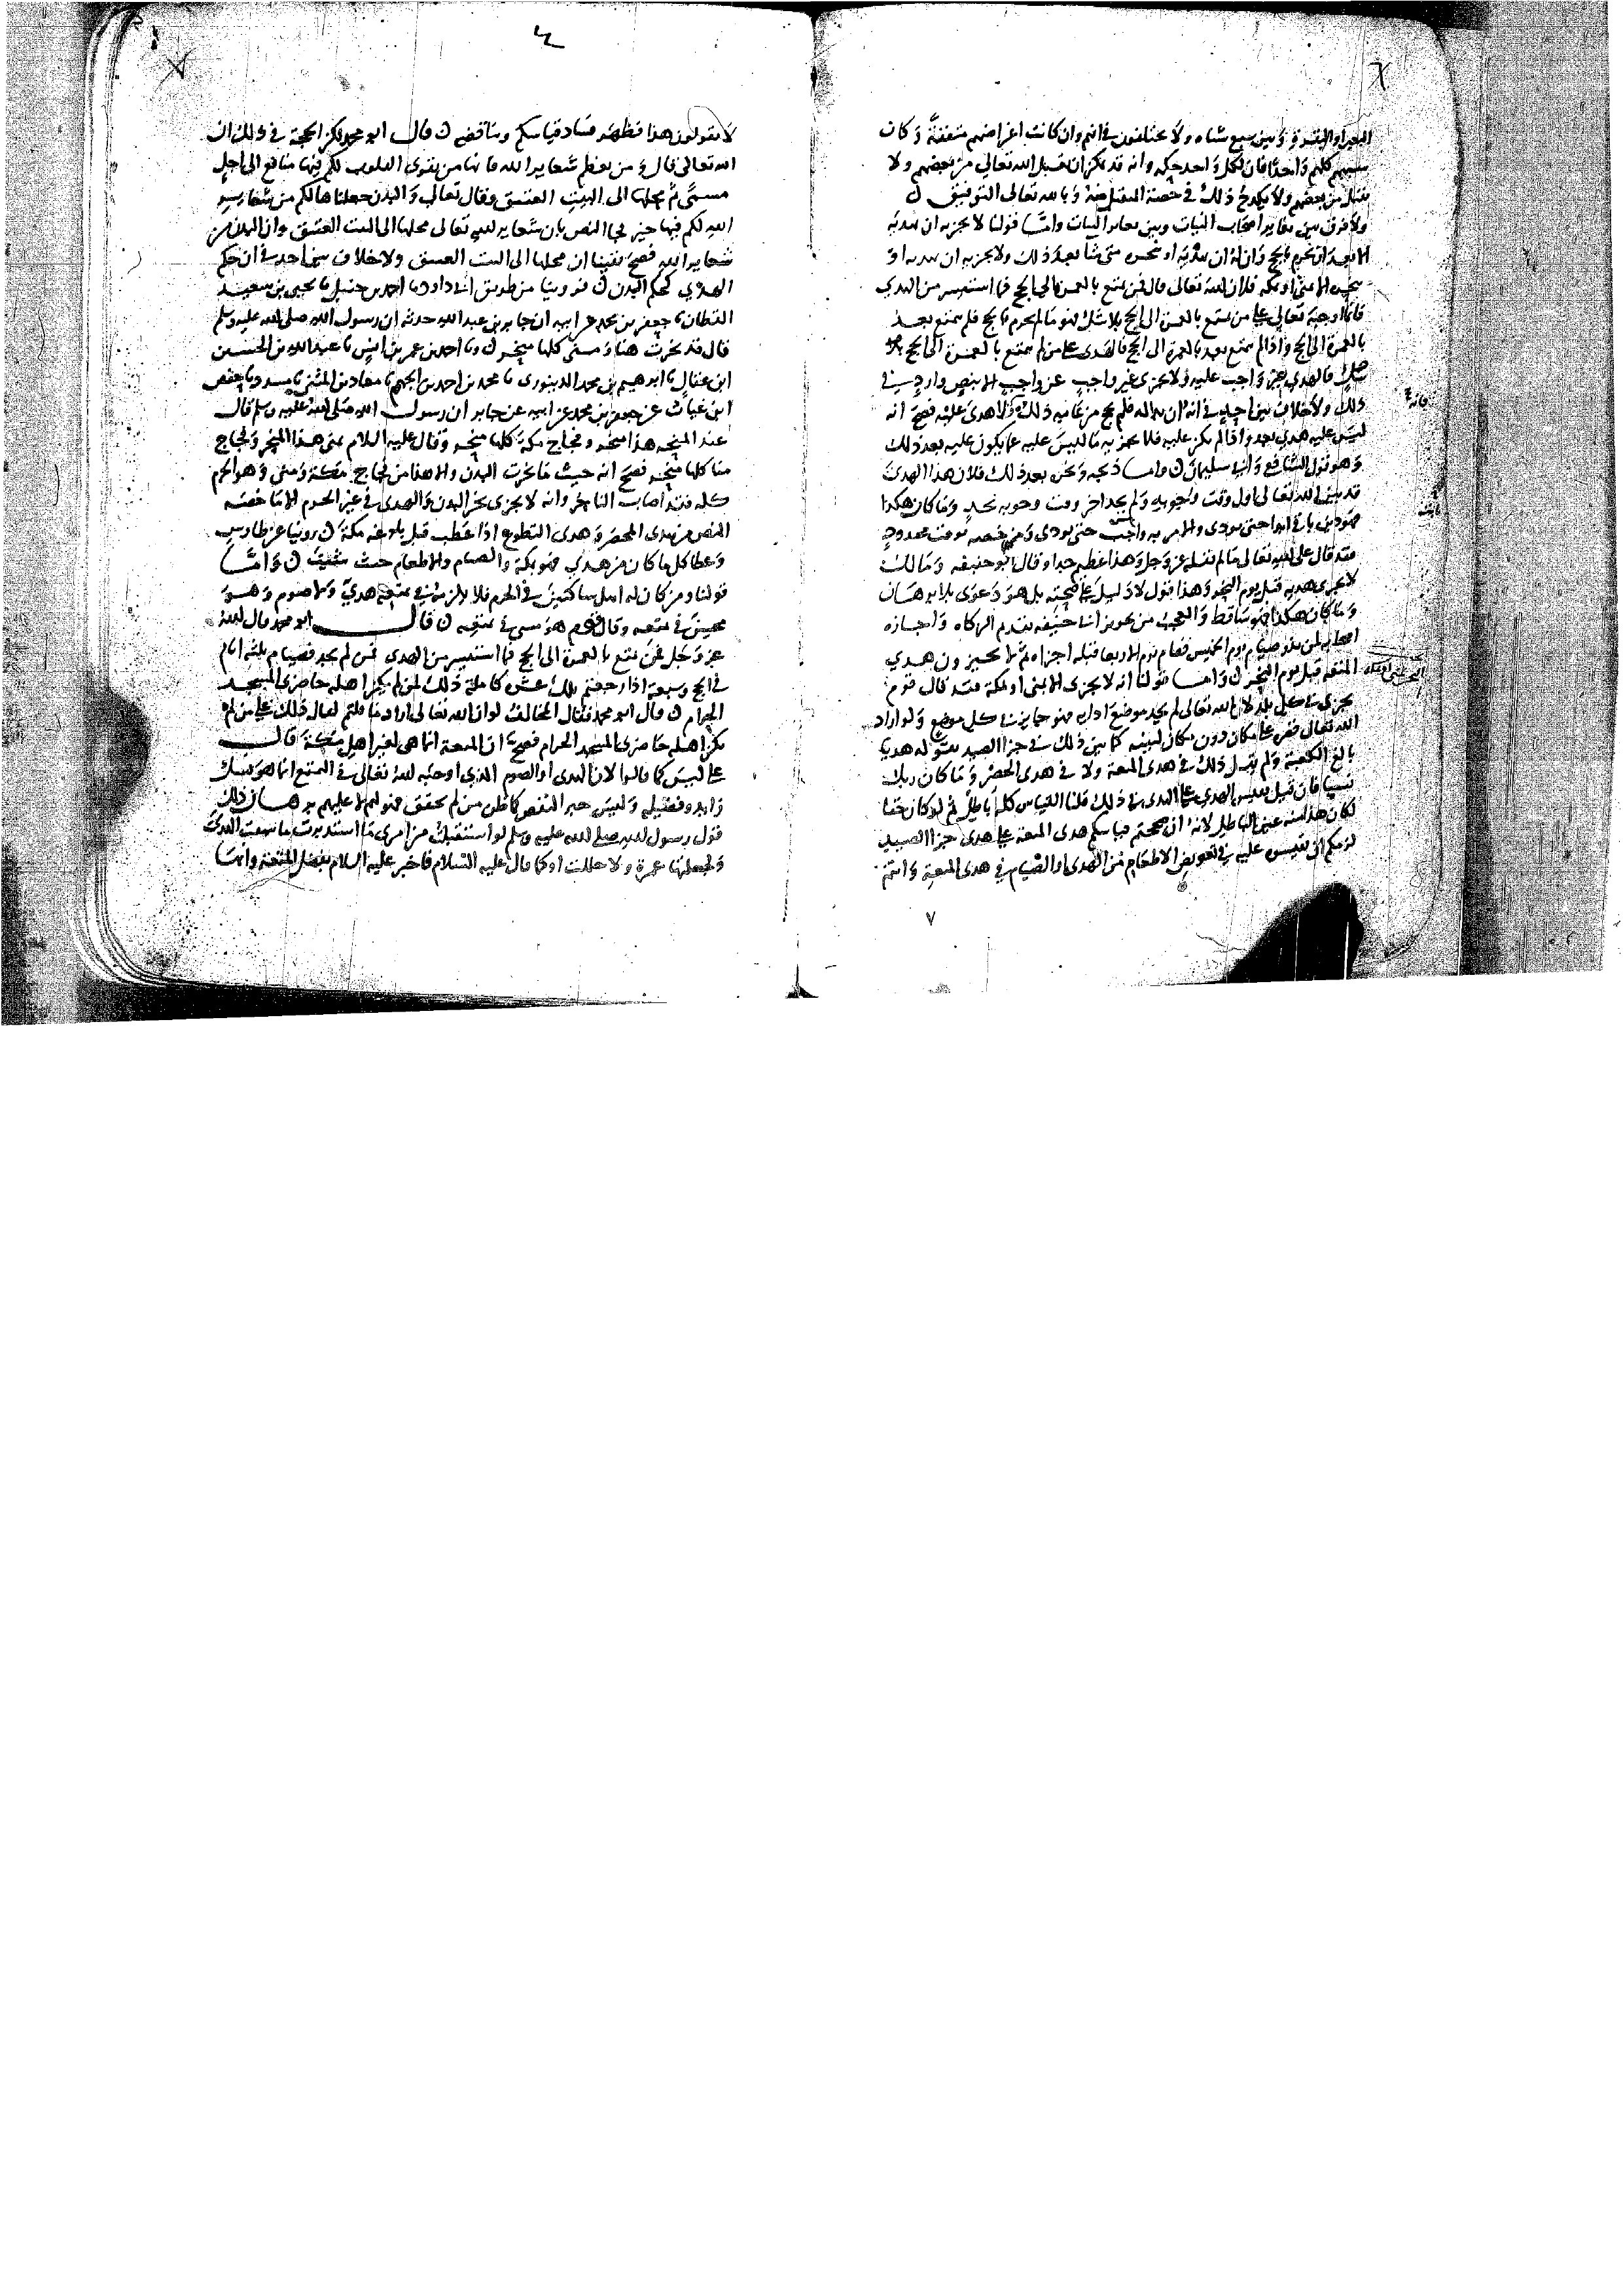 البعير او البقرة وبين سبع شياه ولا يختلفون في انهم وان كانت اغراضهم متفقة وكان
سببهم كلهم واحدا فان لكل واحد حكمه وانه قد يمكن ان يتقبل الله تعالى من بعضهم ولا
يتقبل من بعضهم ولا يقدح ذلك في حصة المتقبل منه وبالله تعالى التوفيق ن
ولا فرق بين معاير اصحاب النيات وبين معاير النيات واما قولنا لا يجزيه ان يهديه
الا بعد ان يحرم بالحج وان له ان يذبحه او ينحره متى شا بعد ذلك ولا يجزيه ان يهديه او
ينحره الا بمنى او بمكة فلان الله تعالى قال فمن تمتع بالعمرة الى الحج فما استيسر من الهدي
فانما اوجبه تعالى على من تمتع بالعمرة الى الحج بلا شك فهو ما لم يحرم بالحج فلم يتمتع بعد
بالعمرة الى الحج واذا لم يتمتع بعد بالعمرة الى الحج فالهدي على من لم يتمتع بالعمرة الى الحج
فالهدي غير واجب عليه ولا يجزى غير واجب عن واجب الا بنص وارد في
ذلك ولا خلاف بين احد في انه ان بدا له فلم يحج من عامه ذلك ولا هدي عليه فصح انه
ليس عليه هدي بعد واذا لم يكن عليه فلا يجزيه ما ليس عليه عما يكون عليه بعد ذلك
وهو قول الشافعي وابي سليمان ن واما ذبحه ونحره بعد ذلك فلان هذا الهدي
قد بين الله تعالى اول وقت وجوبه ولم يحد اخر وقت وجوبه بحد وما كان هكذا
فهو دين باق ابدا حتى يودى والامر به واجب حتى يودى ومن خصه بوقت محدود
فقد قال على الله تعالى ما لم يقله عز وجل وهذا عظيم جدا وقال ابو حنيفة ومالك
لا يجزى هديه قبل يوم النحر وهذا قول لا دليل على صحته بل هو دعوى بلا برهان
وما كان هكذا فهو ساقط والعجب من تجويز ابي حنيفة تقديم الزكاة واجازة
اصحابه لمن نذر صيام يوم الخميس فصام يوم الاربعا قبله اجزاه ثم لا يجيزون هدي
المتعة قبل يوم النحر ن واما قولنا انه لا يجزى الا بمنى او بمكة فقد قال قوم
يجزى في كل بلد لان الله تعالى لم يحد موضع ادايه فهو جايز في كل موضع ولو اراد
الله تعالى قصره على مكان دون مكان لبينه كما بين ذلك في جزا الصيد بقوله هديا
بالغ الكعبة ولم يقل ذلك في هدي المتعة ولا في هدي المحصر وما كان ربك
نسيا فان قيل نقيس الهدي على الهدي في ذلك قلنا القياس كله باطل ثم لو كان حقا
لكان هذا منه عين الباطل لانه ان صححتم قياسكم هدي المتعة على هدي جزا الصيد
لزمكم ان تقيسوه عليه في تعويض الاطعام من الهدي او الصيام في هدي المتعة وانتم
٧
لا تقولون هذا فظهر فساد قياسكم وتناقضه ن قال ابو محمد لكن الحجة في ذلك ان
الله تعالى قال ومن يعظم شعاير الله فانها من تقوى القلوب لكم فيها منافع الى اجل
مسمى ثم محلها الى البيت العتيق وقال تعالى والبدن جعلناها لكم من شعاير
الله لكم فيها خير فجا النص بان شعاير الله تعالى محلها الى البيت العتيق وان البدن من
شعاير الله فصح يقينا ان محلها الى البيت العتيق ولا خلاف بين احد في ان حكم
الهدي كحكم البدن ن فروينا من طريق ابي داود نا احمد بن حنبل نا يحيى بن سعيد
القطان نا جعفر بن محمد عن ابيه ان جابر بن عبد الله حدثه ان رسول الله صلى الله عليه وسلم
قال قد نحرت هنا ومنى كلها منحر ن ونا احمد بن عمر بن انس نا عبد الله بن الحسين
ابن عقال نا ابرهيم بن محمد الدينورى نا محمد بن احمد بن الجهم نا معاذ بن المثنى نا مسدد نا حفص
ابن غياث عن جعفر بن محمد عن ابيه عن جابر ان رسول الله صلى الله عليه وسلم قال
عند المنحر هذا منحر وفجاج مكة كلها منحر وقال عليه السلام بمنى هذا المنحر وفجاج
منا كلها منحر فصح انه حيث ما نحرت البدن والاهدا من فجاج مكة ومنى وهو الحرم
كله فقد اصاب الناحر وانه لا يجزى نحر البدن والهدي في غير الحرم الا ما خصه
النص من هدي المحصر وهدي التطوع اذا عطب قبل بلوغه مكة ن روينا عن طاوس
وعطا كل ما كان من هدي فهو بمكة والصيام والاطعام حيث شيت ن واما
قولنا ومن كان له اهل ساكنين في الحرم فلا يلزمه في متعته هدي ولا صوم وهو
محسن في متعته وقال قوم هو مسى في متعته ن قال ابو محمد قال الله
عز وجل فمن تمتع بالعمرة الى الحج فما استيسر من الهدي فمن لم يجد فصيام ثلثة ايام
في الحج وسبعة اذا رجعتم تلك عشرة كاملة ذلك لمن لم يكن اهله حاضري المسجد
الحرام ن قال ابو محمد فقال المخالف لو ان الله تعالى اراد ما قلتم لقال ذلك على من لم
يكن اهله حاضري المسجد الحرام فصح ان المتعة انما هي لغير اهل مكة قال
علي ليس كما قالوا لان الهدي او الصوم الذي اوجبه الله تعالى في التمتع انما هو نسك
زايد وفضيلة وليس جبر النقص كما ظن من لم يحقق فهو لهم لا عليهم برهان ذلك
قول رسول الله صلى الله عليه وسلم لو استقبلت من امري ما استدبرت ما سقت الهدي
ولجعلتها عمرة ولاحللت او كما قال عليه السلام فاخبر عليه السلام بفضل المتعة وانها